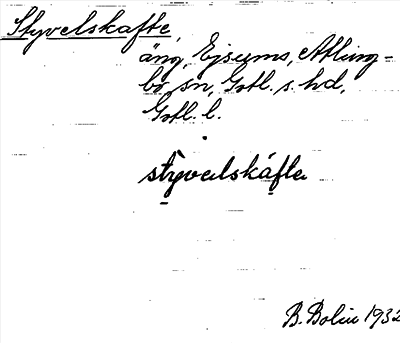 Styvelskafte,
äng, Ejsums, Atling-
bo sn, Gotl. s. hd,
Gotl. l.
stỳvalskáfta
B. Bolin 1932